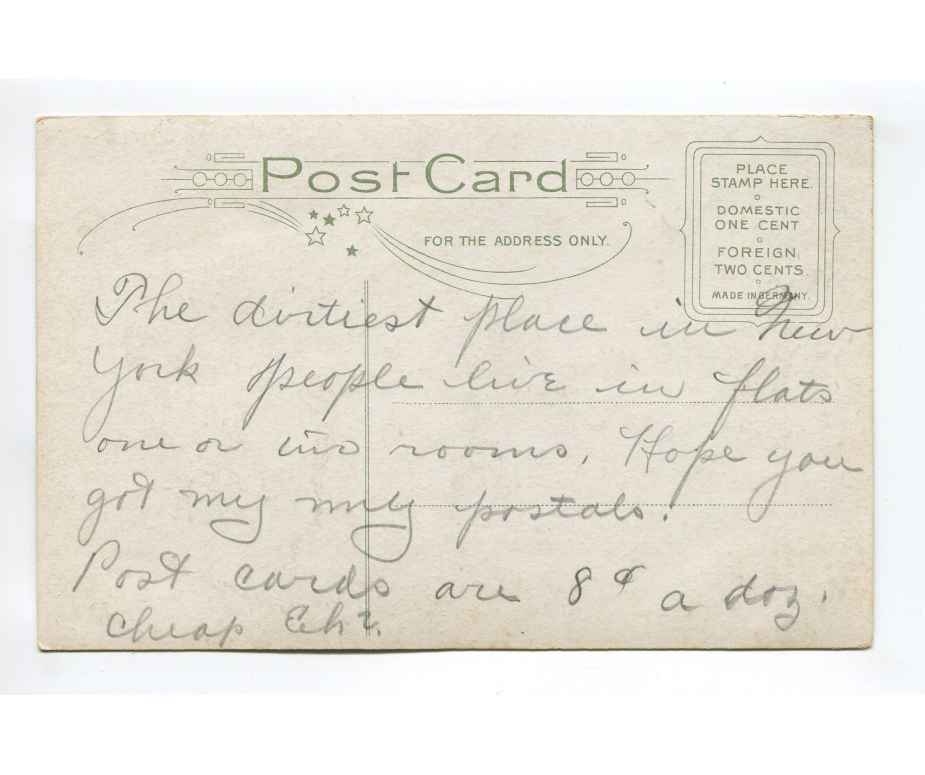 Post Card
FOR THE ADDRESS ONLY.
PLACE
STAMP HERE.
DOMESTIC
ONE CENT
FOREIGN,
TWO CENTS
MADE IN GERMANY.
The dirtiest place in New
York people live in flats
one or two rooms. Hope you
got my postals.
Post cards are 8¢ a doz.
cheap Eh?